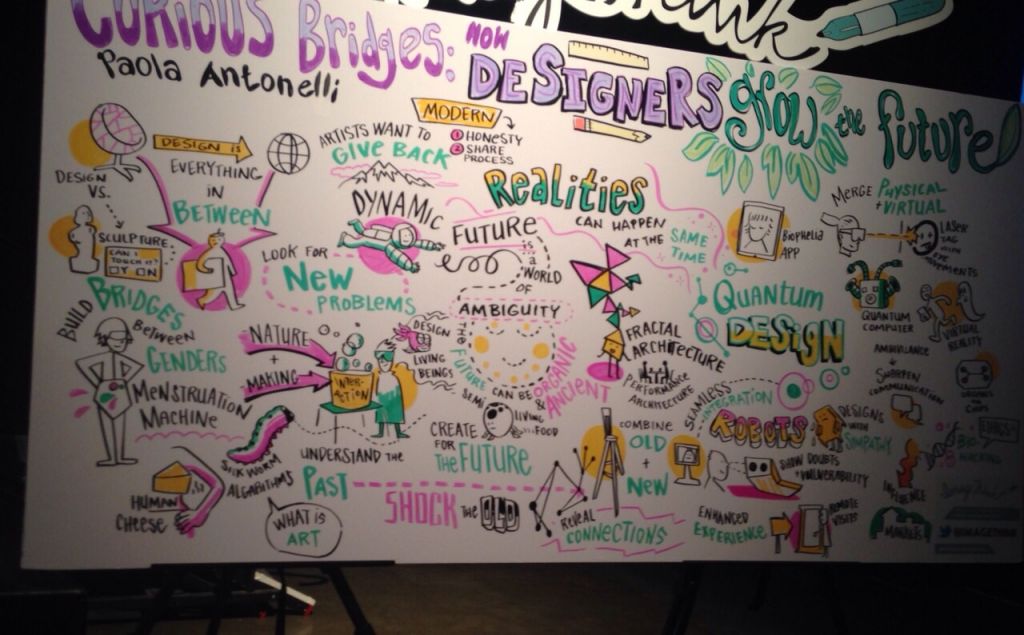 CURIOUS Bridges: HOW DESIGNERS grow the future
Paola Antonelli
MODERN
1 HONESTY
2 SHARE
PROCESS
ARTISTS WANT TO
GIVE BACK
DESIGN IS
EVERYTHING
IN
BETWEEN
DESIGN
VS.
SCULPTURE
CAN I
TOUCH IT?
Y N
BUILD
BRIDGES
BETWEEN
GENDERS
MENSTRUATION
MACHINE
LOOK FOR
NEW
PROBLEMS
DYNAMIC
FUTURE
is
a
WORLD
OF
AMBIGUITY
REALITIES
CAN HAPPEN
AT THE SAME
TIME
NATURE
+
MAKING
INTER-
ACTION
DESIGN
LIVING
BEINGS
THE FUTURE CAN BE ORGANIC
& ANCIENT
SEMI
LIVING
FOOD
CREATE
FOR
THE FUTURE
SILK WORM
ALGORITHMS
HUMAN
CHEESE
UNDERSTAND THE
PAST
WHAT IS
ART
SHOCK THE OLD
REVEAL
CONNECTIONS
COMBINE
OLD
+
NEW
FRACTAL
ARCHITECTURE
PERFORMANCE
ARCHITECTURE
BIOPHELIA
APP
MERGE PHYSICAL
+ VIRTUAL
LASER
TAG
WITH
EYE
MOVEMENTS
QUANTUM
DESIGN
QUANTUM
COMPUTER
VIRTUAL
REALITY
AMBIVALENCE
+
SHARPEN
COMMUNICATION
SEAMLESS
INTEGRATION
ROBOTS
DESIGNS
WITH
SYMPATHY
SHOW DOUBTS
+ VULNERABILITY
INFLUENCE
BIO-
HACKING
ENHANCED
EXPERIENCE
REMOTE
VISITS
MARKETS